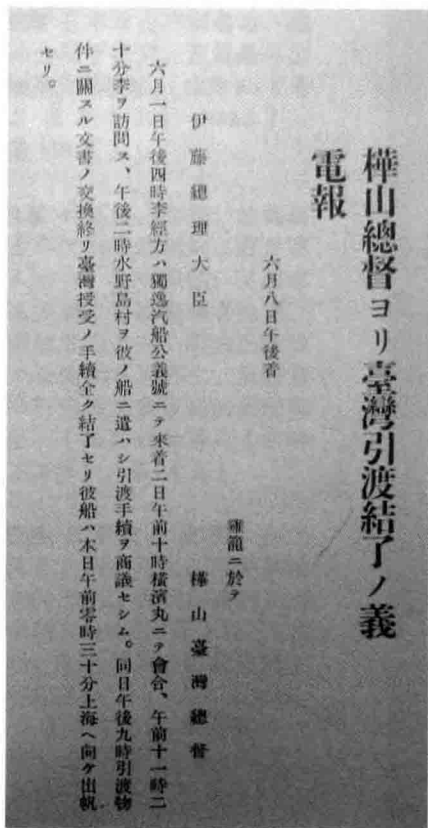 樺山總督ヨリ臺灣引渡結了ノ義
電報
六月八日午後着
雞籠ニ於テ
伊藤總理大臣
樺山臺灣總督
六月一日午後四時李經方ハ獨逸汽船公義號ニテ來着二日午前十時橫濱丸ニテ會合、午前十一時二
十分李ヲ訪問ス、午後二時水野島村ヲ彼ノ船ニ遣ハシ引渡手續ヲ商議セシム。同日午後九時引渡物
件ニ關スル文書ノ交換終リ臺灣授受ノ手續全ク結了セリ彼船ハ本日午前零時三十分上海ヘ向ケ出帆
セリ。